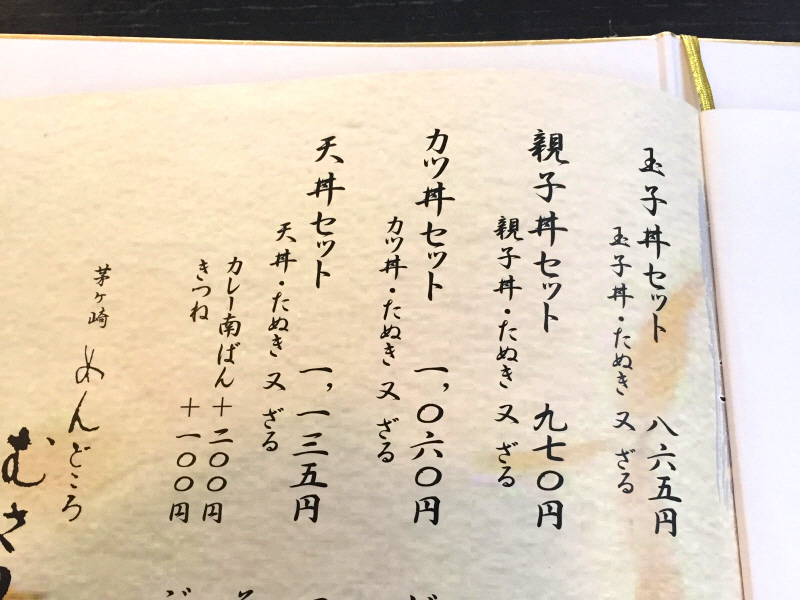 玉子丼セット 八六五円
玉子丼・たぬき 又 ざる
親子丼セット 九七〇円
親子丼・たぬき 又 ざる
カツ丼セット 一,〇六〇円
カツ丼・たぬき 又 ざる
天丼セット 一,一三五円
天丼・たぬき 又 ざる
カレー南ばん ＋二〇〇円
きつね ＋一〇〇円
茅ヶ崎 めんどころ
むさ